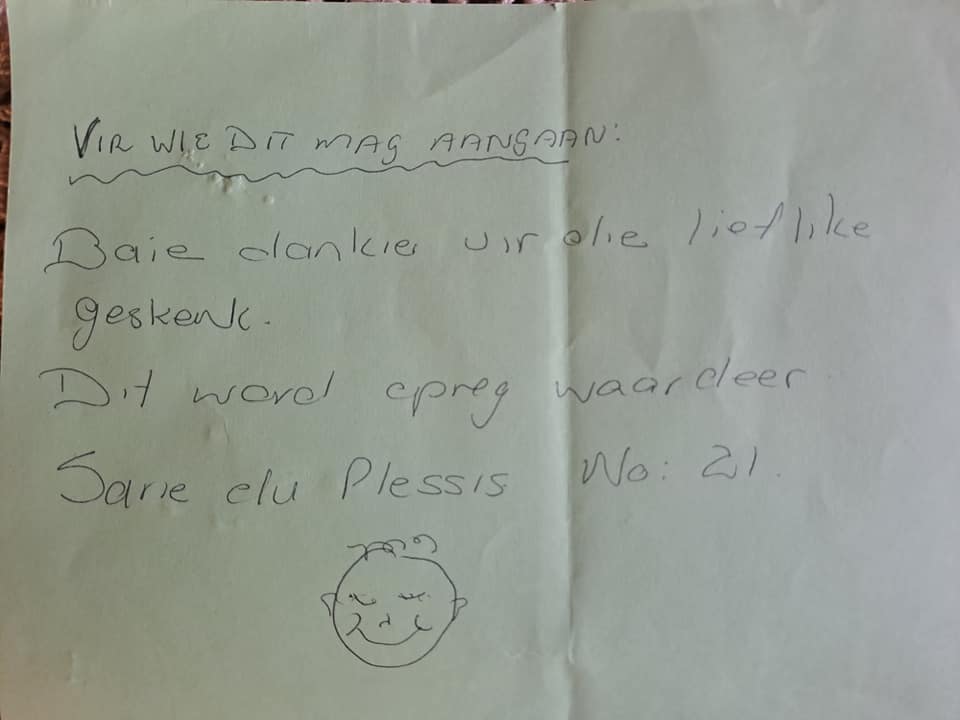 VIR WIE DIT MAG AANGAAN:
Baie dankie vir die lieflike
geskenk.
Dit word opreg waardeer.
Sarie du Plessis No: 21.